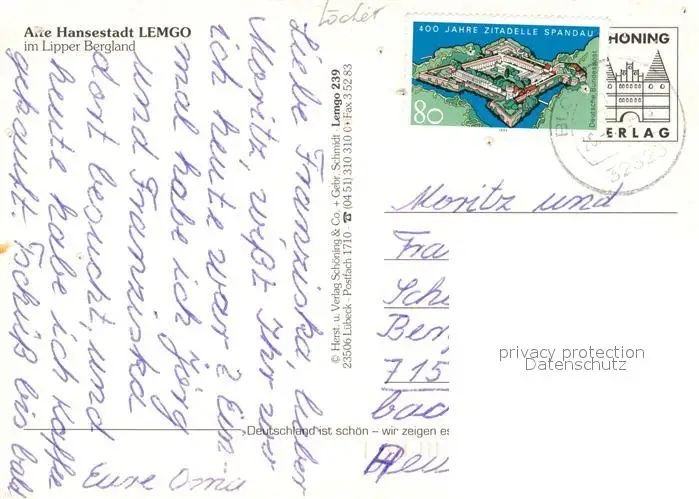 Alte Hansestadt LEMGO
im Lipper Bergland
Liebe Franziska, lieber
Moritz, wißt Ihr wo
ich heute war? Ein-
mal habe ich Jörg
und Franziska
dort besucht, und
heute habe ich Kaffee
gekauft. Tschüß bis bald
Eure Oma
© Herst. u. Verlag Schöning & Co. + Gebr. Schmidt · Lemgo 239
23506 Lübeck · Postfach 1710 · ☎ (04 51) 310 310 · Fax 3 52 83
„Deutschland ist schön – wir zeigen es
400 JAHRE ZITADELLE SPANDAU
Deutsche Bundespost
80
HÖNING
ERLAG
32323
Moritz und
Fra
Sch
Ber
715
bac
privacy protection
Datenschutz